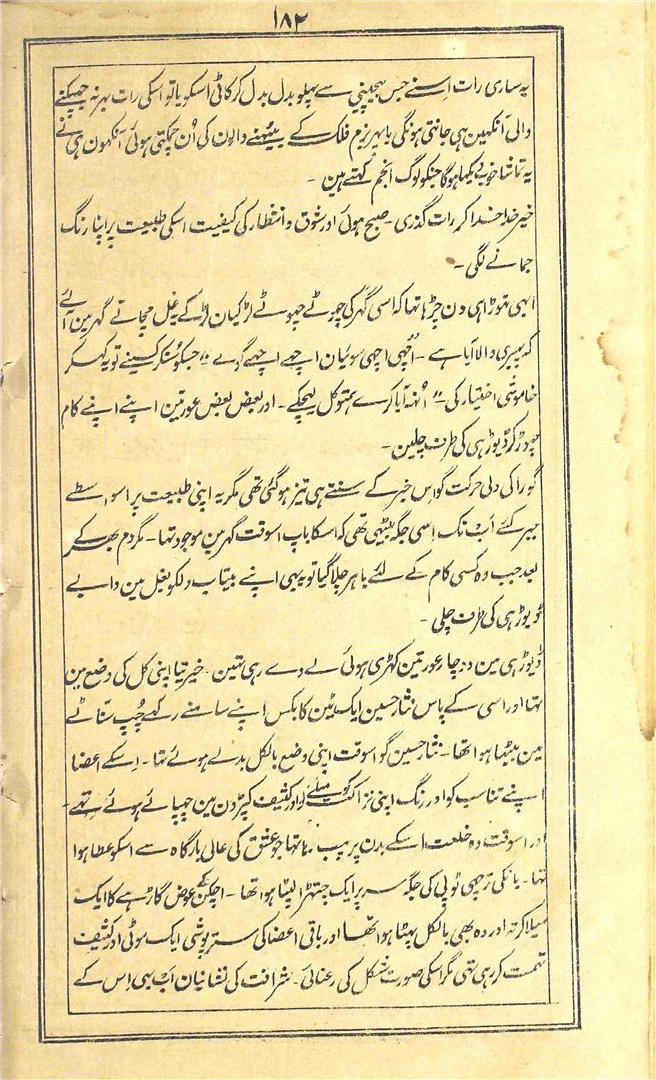 ۱۸۲
یہ ساری رات اسنے جس بیچینی سے پہلو بدل بدل کر کاٹی اسکو یا تو اسکی رات بہر نہ جھپکنے
والی آنکھین ہی جانتی ہونگی یا پہر بزم فلک کے بیٹھنے والون کی اُن چمکتی ہوئی آنکھون ہی نے
یہ تماشا خوب دیکہا ہوگا جنکو لوگ انجم کہتے ہین ۔
خیر خدا خدا کر رات گذری ۔ صبح ہوئی اور شوق و انتظار کی کیفیت اسکی طبیعت پر اپنا رنگ
جمانے لگی ۔
ابہی تہوڑا ہی دن چڑہا تہا کہ اسی گھر کی چہوٹے چہوٹے لڑکیان لڑکے یہ غل مچاتے گھر مین آئے
کہ پہیری والا آیا ہے ۔ اچھی اچھی سوئیان اچھے اچھے گوٹے ،، جسکو سُنکر کسینے تو یہ کہکر
خاموشی اختیار کی ،، اُنہہ آیا کرے ہمتو کل لیچکے ۔ اور بعض بعض عورتین اپنے اپنے کام
چہوڑ کر ڈیوڑہی کی طرف چلین ۔
گورا کی دلی حرکت گو اس خبر کے سنتے ہی تیز ہو گئی تھی مگر یہ اپنی طبیعت پر اسواسطے
جبر کئے اَب تک اِسی جگہ بیٹھی تھی کہ اسکا باپ اسوقت گھر مین موجود تہا ۔ مگر دم بھر کے
بعد جب وہ کسی کام کے لئے باہر چلا گیا تو یہ بہی اپنے بیتاب دلکو بغل مین دابے
ڈیوڑہی کی طرف چلی ۔
ڈیوڑہی مین دو چار عورتین کھڑی ہوئی لے دے رہی تہین ۔ خیرتیا اپنی کل کی وضع مین
تہا اور اسی کے پاس نثار حسین ایک ٹین کا بکس اپنے سامنے رکھے چُپ سنّاٹے
مین بیٹہا ہوا تھا ۔ نثار حسین گو اسوقت اپنی وضع بالکل بدلے ہوئے تہا ۔ اِسکے اعضا
اپنے تناسب کو اور رنگ اپنی نزاکت کو میلے اور کثیف کپڑون مین چہپائے ہوئے تہے ۔
اور اسوقت وہ خلعت اسکے بدن پر پہب رہا تہا جو عشق کی عالی بارگاہ سے اسکو عطا ہوا
تہا ۔ بانکی ترچہی ٹوپی کی جگہ سر پر ایک چتھڑا لپٹا ہوا تھا ۔ اچکن کے عوض گاڑہے کا ایک
میلا کرتہ اور وہ بھی بالکل پہٹا ہوا تھا اور باقی اعضا کی ستر پوشی ایک موٹی اور کثیف
تہمت کر رہی تہی مگر اسکی صورت شکل کی رعنائی ۔ شرافت کی نشانیان اَب بہی اِس کے